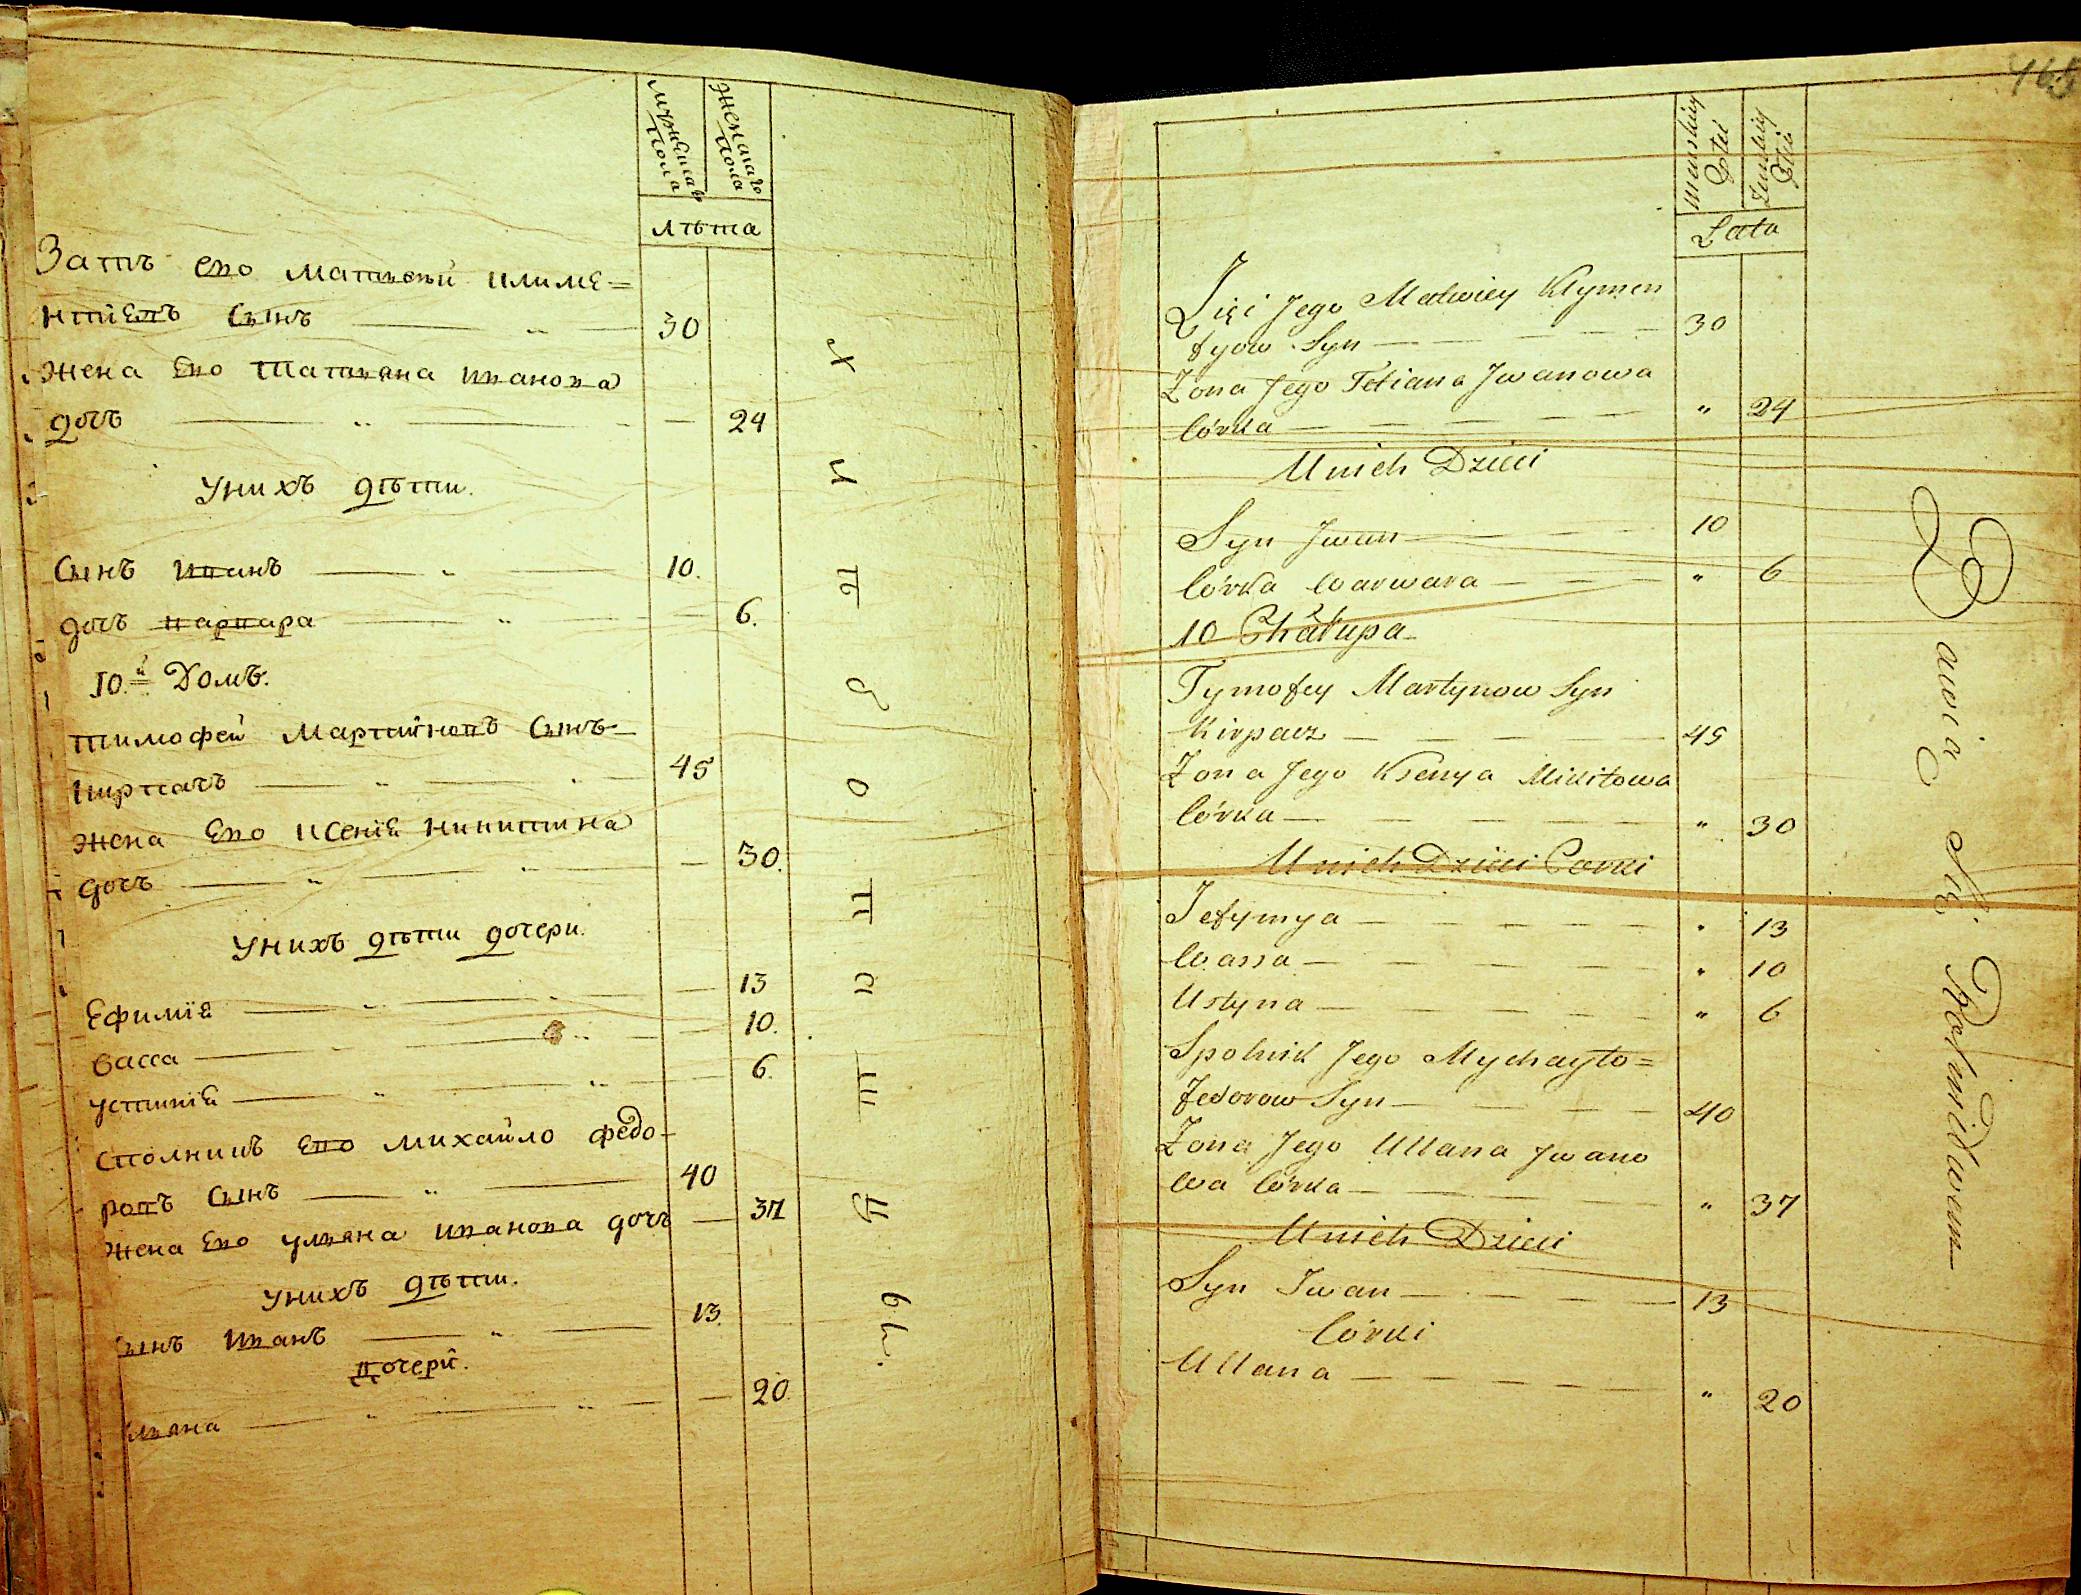 мужеска пола
женскаго пола
лѣта
Зять его Матвей Климе=
нтіевъ Сынъ 30
жена Его Татияна Иванова
дочь — 24
Унихъ дѣти.
Сынъ Иванъ 10.
дочь варвара — 6.
10.й Домъ.
тимофей Мартиновъ Сынъ
кирпачъ 45
жена Его ксеніа никитина
дочь — 30.
Унихъ дѣти дочери.
Ефиміа — 13
васса — 10.
устиніа — 6.
сполникъ Его михайло федо-
ровъ Сынъ 40
жена Его ульяна иванова дочь — 37
Унихъ дѣти.
Сынъ Иванъ 13.
дочери.
ульяна — 20.
хлѣбопашцы.
165
Męskiej Płci
Żeńskiej Płci
Lata
Zięć Jego Matwiey Klymen
tyow Syn 30
Żona Jego Tetiana Jwanowa
Córka " 24
Unich Dzieci
Syn Jwan 10
Córka Warwara " 6
10 Chałupa
Tymofey Martynow Syn
Kirpacz 45
Żona Jego Ksenya Mikitowa
Córka " 30
Unich Dzieci Corki
Jefymya " 13
Wassa " 10
Ustyna " 6
Spolnik Jego Mychayło=
Fedorow Syn 40
Żona Jego Ullana Jwano
wa Córka " 37
Unich Dzieci
Syn Iwan 13
Córki
Ullana " 20
Bawią się Rolnictwem